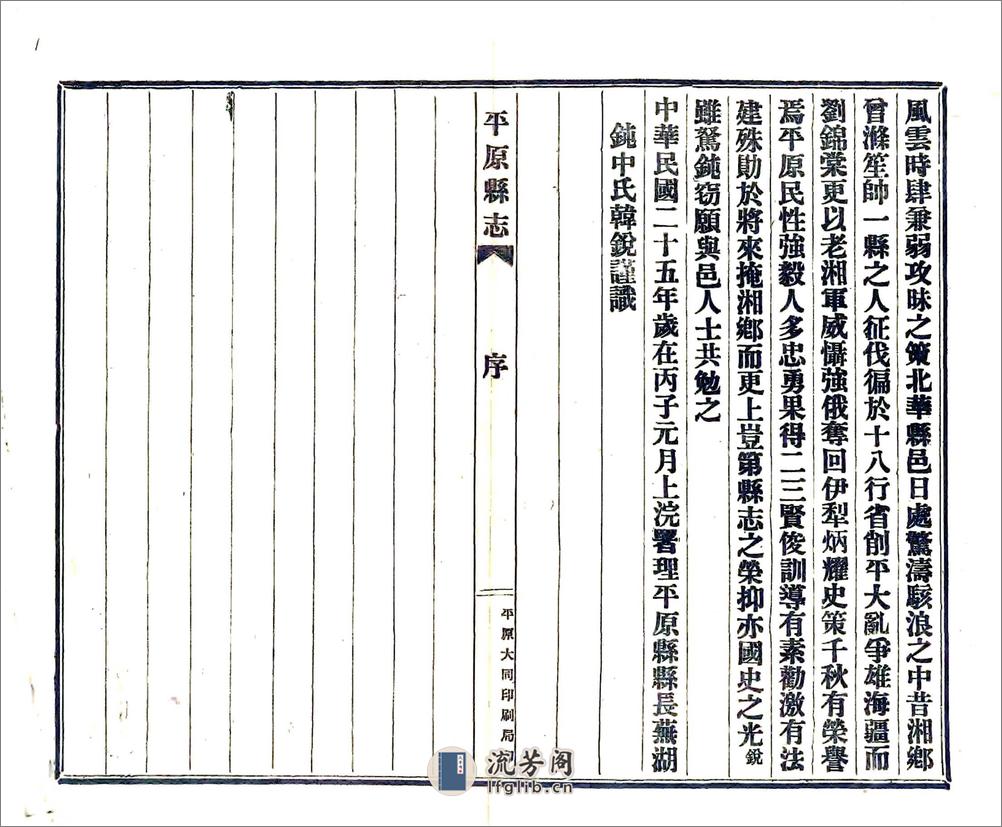 風雲時肆兼弱攻昧之策北華縣邑日處驚濤駭浪之中昔湘鄉
曾滌笙帥一縣之人征伐徧於十八行省削平大亂爭雄海疆而
劉錦棠更以老湘軍威懾強俄奪回伊犁炳耀史策千秋有榮譽
焉平原民性強毅人多忠勇果得二三賢俊訓導有素勸激有法
建殊勛於將來掩湘鄉而更上豈第縣志之榮抑亦國史之光銳
雖駑鈍窃願與邑人士共勉之
中華民國二十五年歲在丙子元月上浣署理平原縣縣長蕪湖
鈍中氏韓銳謹識
平原縣志
序
一
平原大同印刷局
流芳阁
lfglib.cn